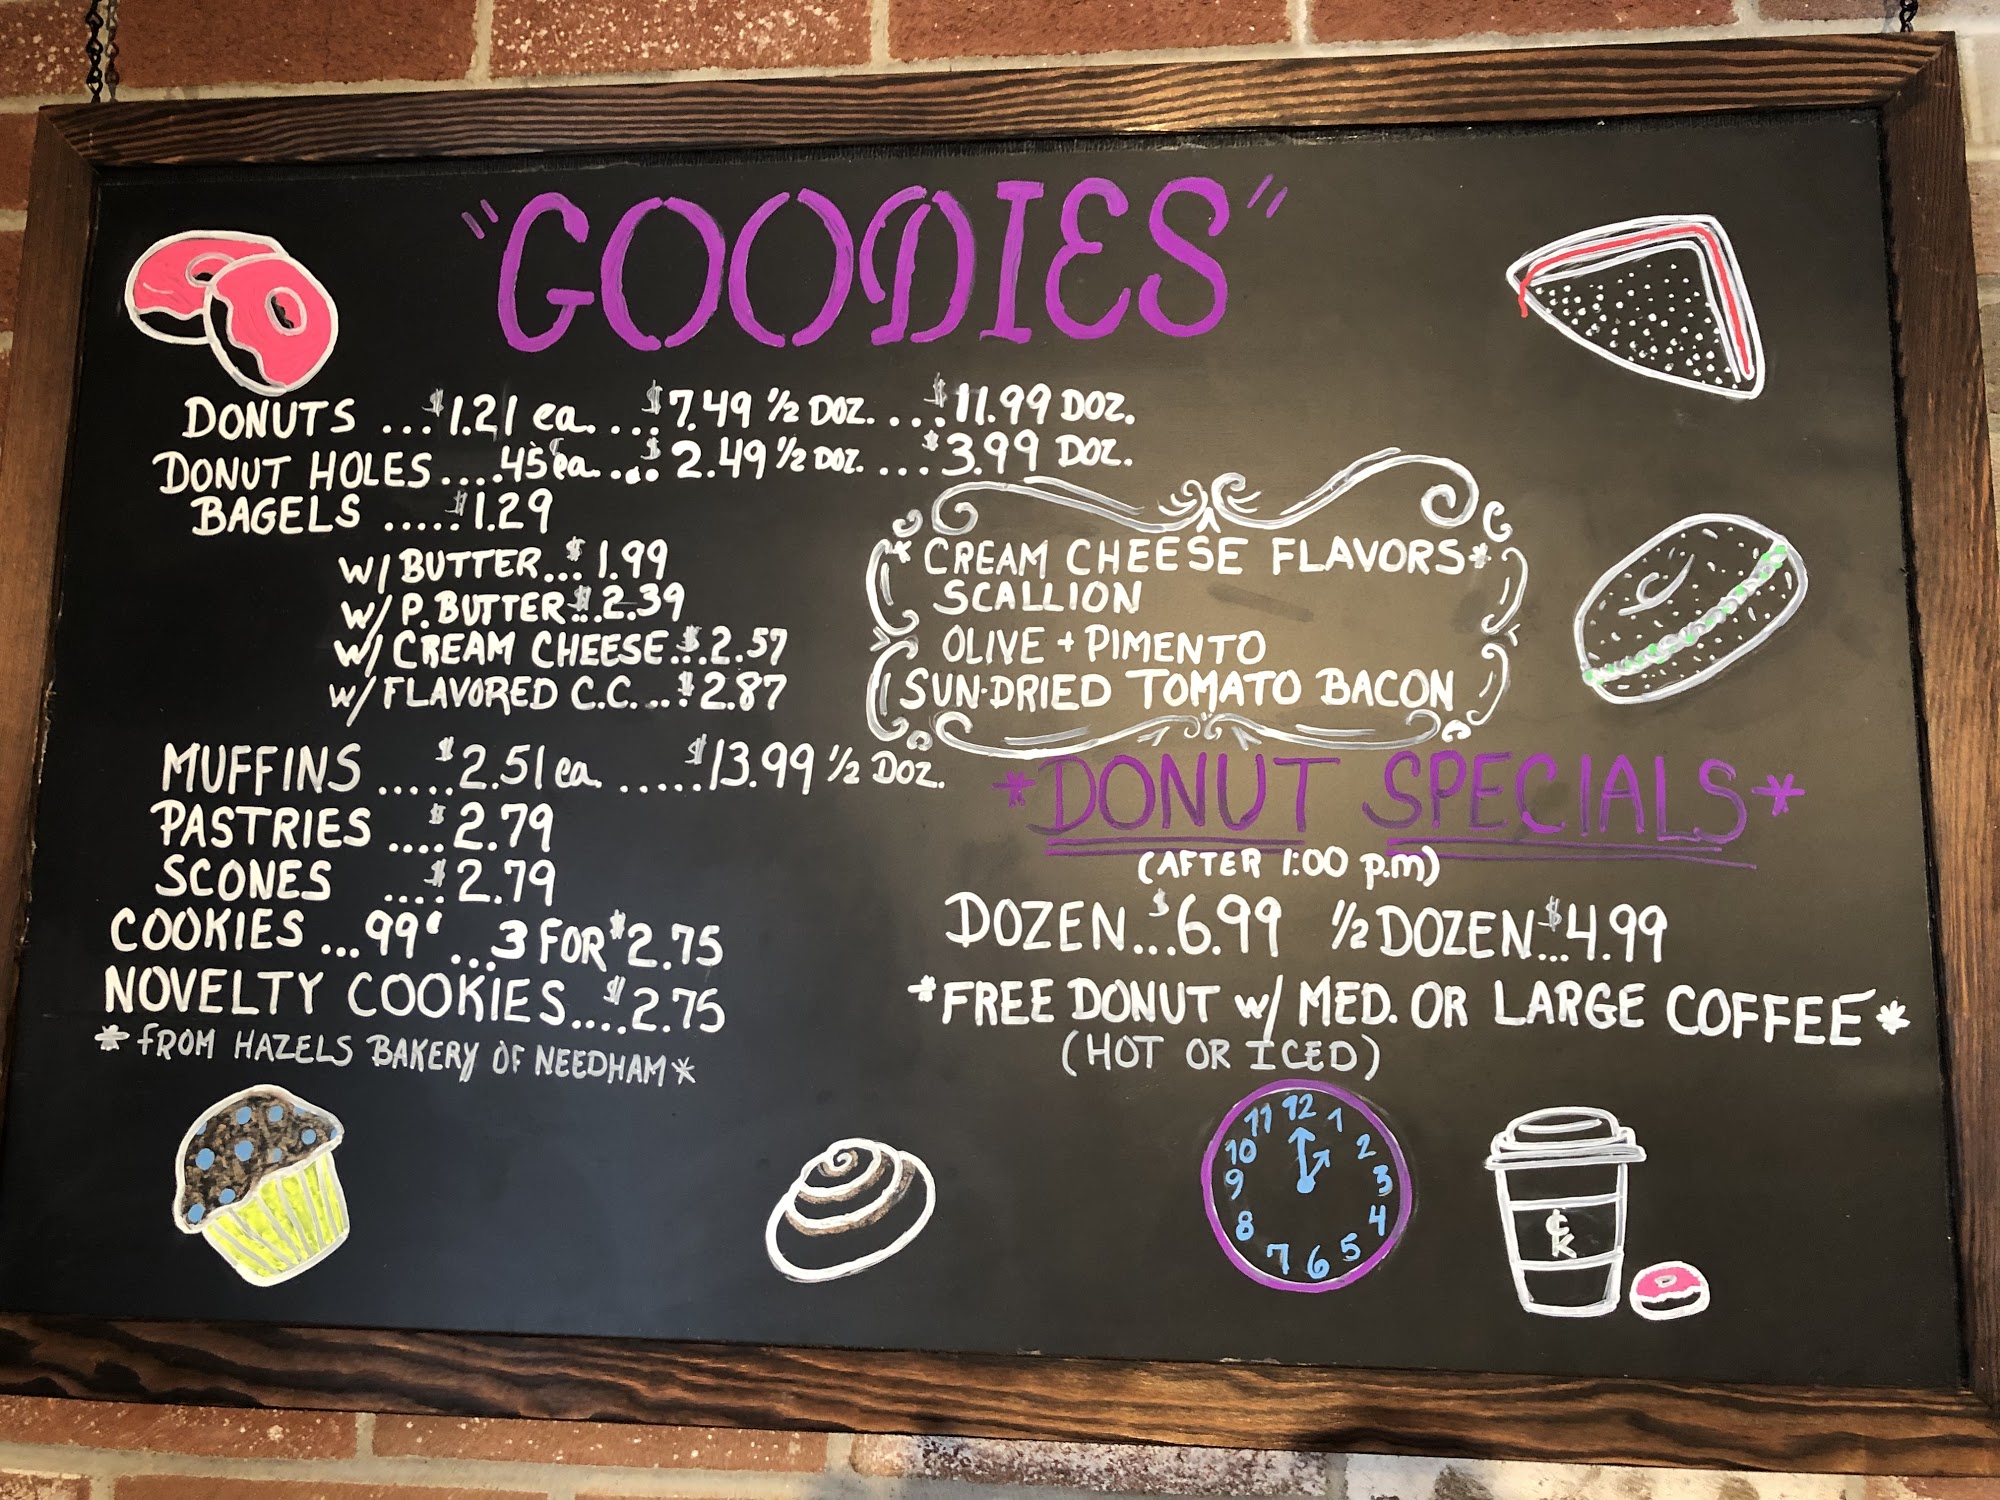 "GOODIES"
DONUTS ...$1.21 ea. ...$7.49 1/2 DOZ. ...$11.99 DOZ.
DONUT HOLES ....45¢ ea. ...$2.49 1/2 DOZ. ...$3.99 DOZ.
BAGELS .....$1.29
W/ BUTTER...$1.99
W/ P. BUTTER...$2.39
W/ CREAM CHEESE...$2.57
W/ FLAVORED C.C. ...$2.87
*CREAM CHEESE FLAVORS*
SCALLION
OLIVE + PIMENTO
SUN-DRIED TOMATO BACON
MUFFINS .....$2.51 ea. .....$13.99 1/2 DOZ.
PASTRIES ....$2.79
SCONES ....$2.79
COOKIES ...99¢ ...3 FOR $2.75
NOVELTY COOKIES....$2.75
*FROM HAZELS BAKERY OF NEEDHAM*
*DONUT SPECIALS*
(AFTER 1:00 p.m)
DOZEN...$6.99 1/2 DOZEN...$4.99
*FREE DONUT W/ MED. OR LARGE COFFEE*
(HOT OR ICED)
11 12 1
10 2
9 3
8 4
7 6 5
CK